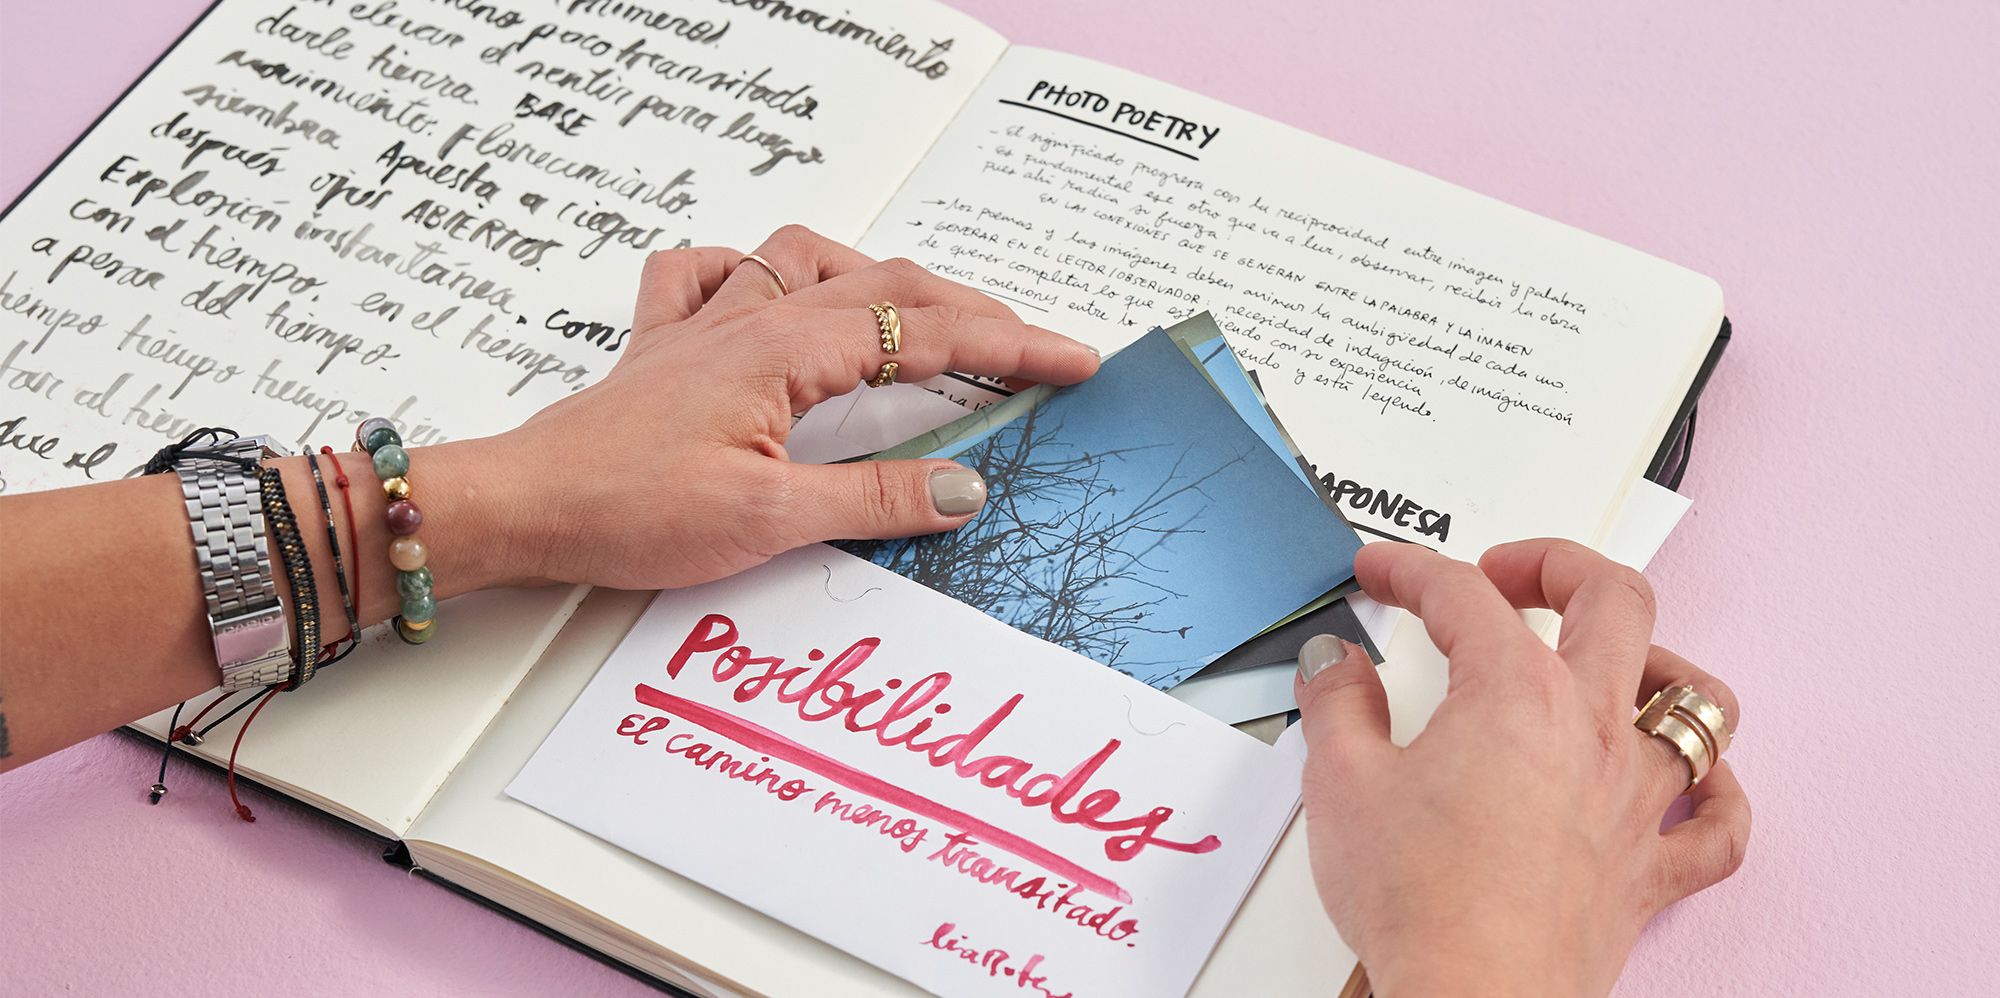 conocimiento
(primeros).
camino poco transitado
elevar el sentir para luego
darle tierra. BASE
movimiento. Florecimiento.
siembra Apuesta a ciegas
después ojos ABIERTOS.
Explosión instantánea. cons
con el tiempo, en el tiempo,
a pesar del tiempo.
tiempo tiempo tiempo
al
que el
PHOTO POETRY
- El significado progresa con la reciprocidad entre imagen y palabra
- Es fundamental ese otro que va a leer, observar, recibir la obra
pues ahí radica su fuerza!
EN LAS CONEXIONES QUE SE GENERAN ENTRE LA PALABRA Y LA IMAGEN
→ los poemas y las imágenes deben animar la ambigüedad de cada uno.
→ GENERAR EN EL LECTOR/OBSERVADOR: necesidad de indagación, de imaginación
de querer completar lo que está viendo con su experiencia
crear conexiones entre lo yendo y está leyendo.
→ La
JAPONESA
Posibilidades
El camino menos transitado.